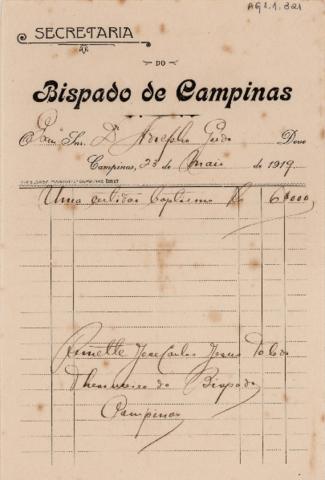 AG 1.1.321
SECRETARIA
DO
Bispado de Campinas
O Exmo. Snr. Dr. Adolpho Gordo Deve
Campinas, 23 de Maio de 1919
Uma certidão baptismo Rs 6$000
José Carlos
Thesoureiro do Bispado
Campinas